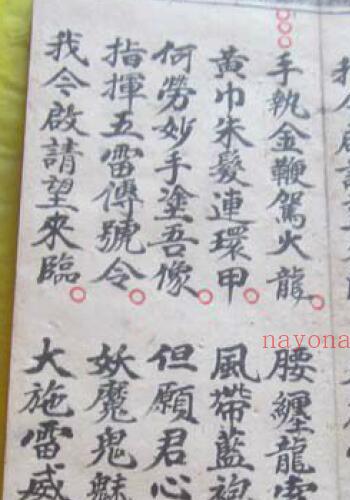 手執金鞭駕火龍 腰纏龍
黃巾朱髮連環甲 風帶藍袍
何勞妙手塗吾像 但願君心
指揮五雷傳號令 妖魔鬼魅
我今啟請望來臨 大施雷威
nayona